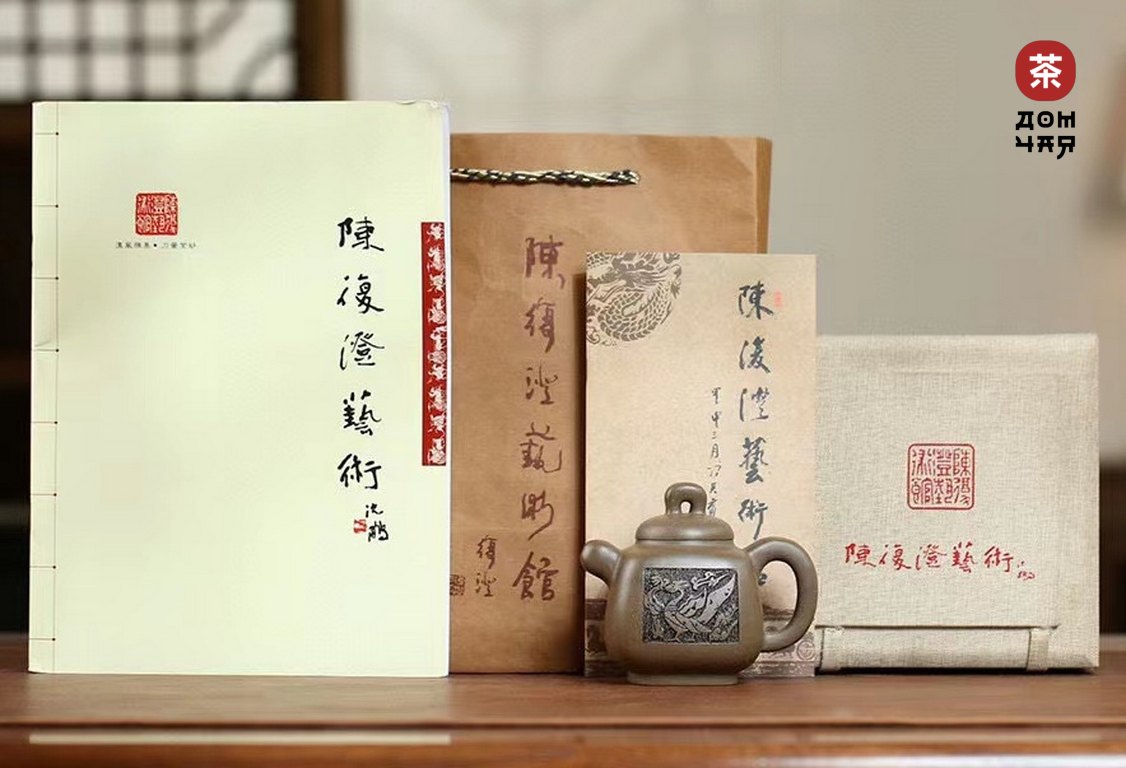 陳復澄藝術
沈鵬
陳復澄藝術館
復澄
陳復澄藝術
陳復澄藝術館
陳復澄藝術
茶
ДОМ
ЧАЯ